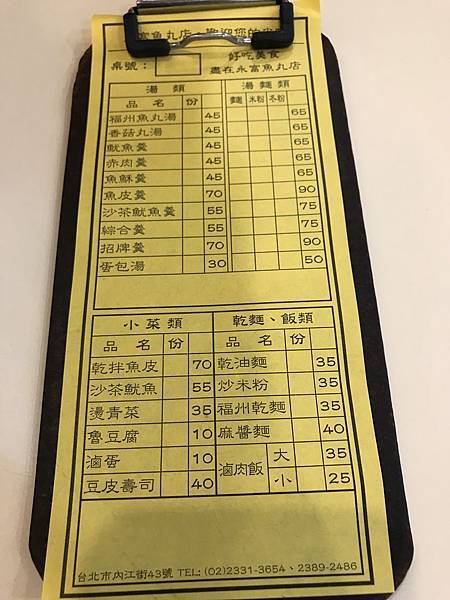 富魚丸店，歡迎您的
桌號： 好吃美食
盡在永富魚丸店
湯 類 湯 麵 類
品 名 份 麵 米粉 冬粉
福州魚丸湯 45 65
香菇丸湯 45 65
魷魚羹 45 65
赤肉羹 45 65
魚酥羹 45 65
魚皮羹 70 90
沙茶魷魚羹 55 75
綜合羹 55 75
招牌羹 70 90
蛋包湯 30 50
小 菜 類 乾麵、飯類
品 名 份 品 名 份
乾拌魚皮 70 乾油麵 35
沙茶魷魚 55 炒米粉 35
燙青菜 35 福州乾麵 35
魯豆腐 10 麻醬麵 40
滷蛋 10 滷肉飯 大 35
豆皮壽司 40 小 25
台北市內江街43號 TEL: (02)2331-3654、2389-2486